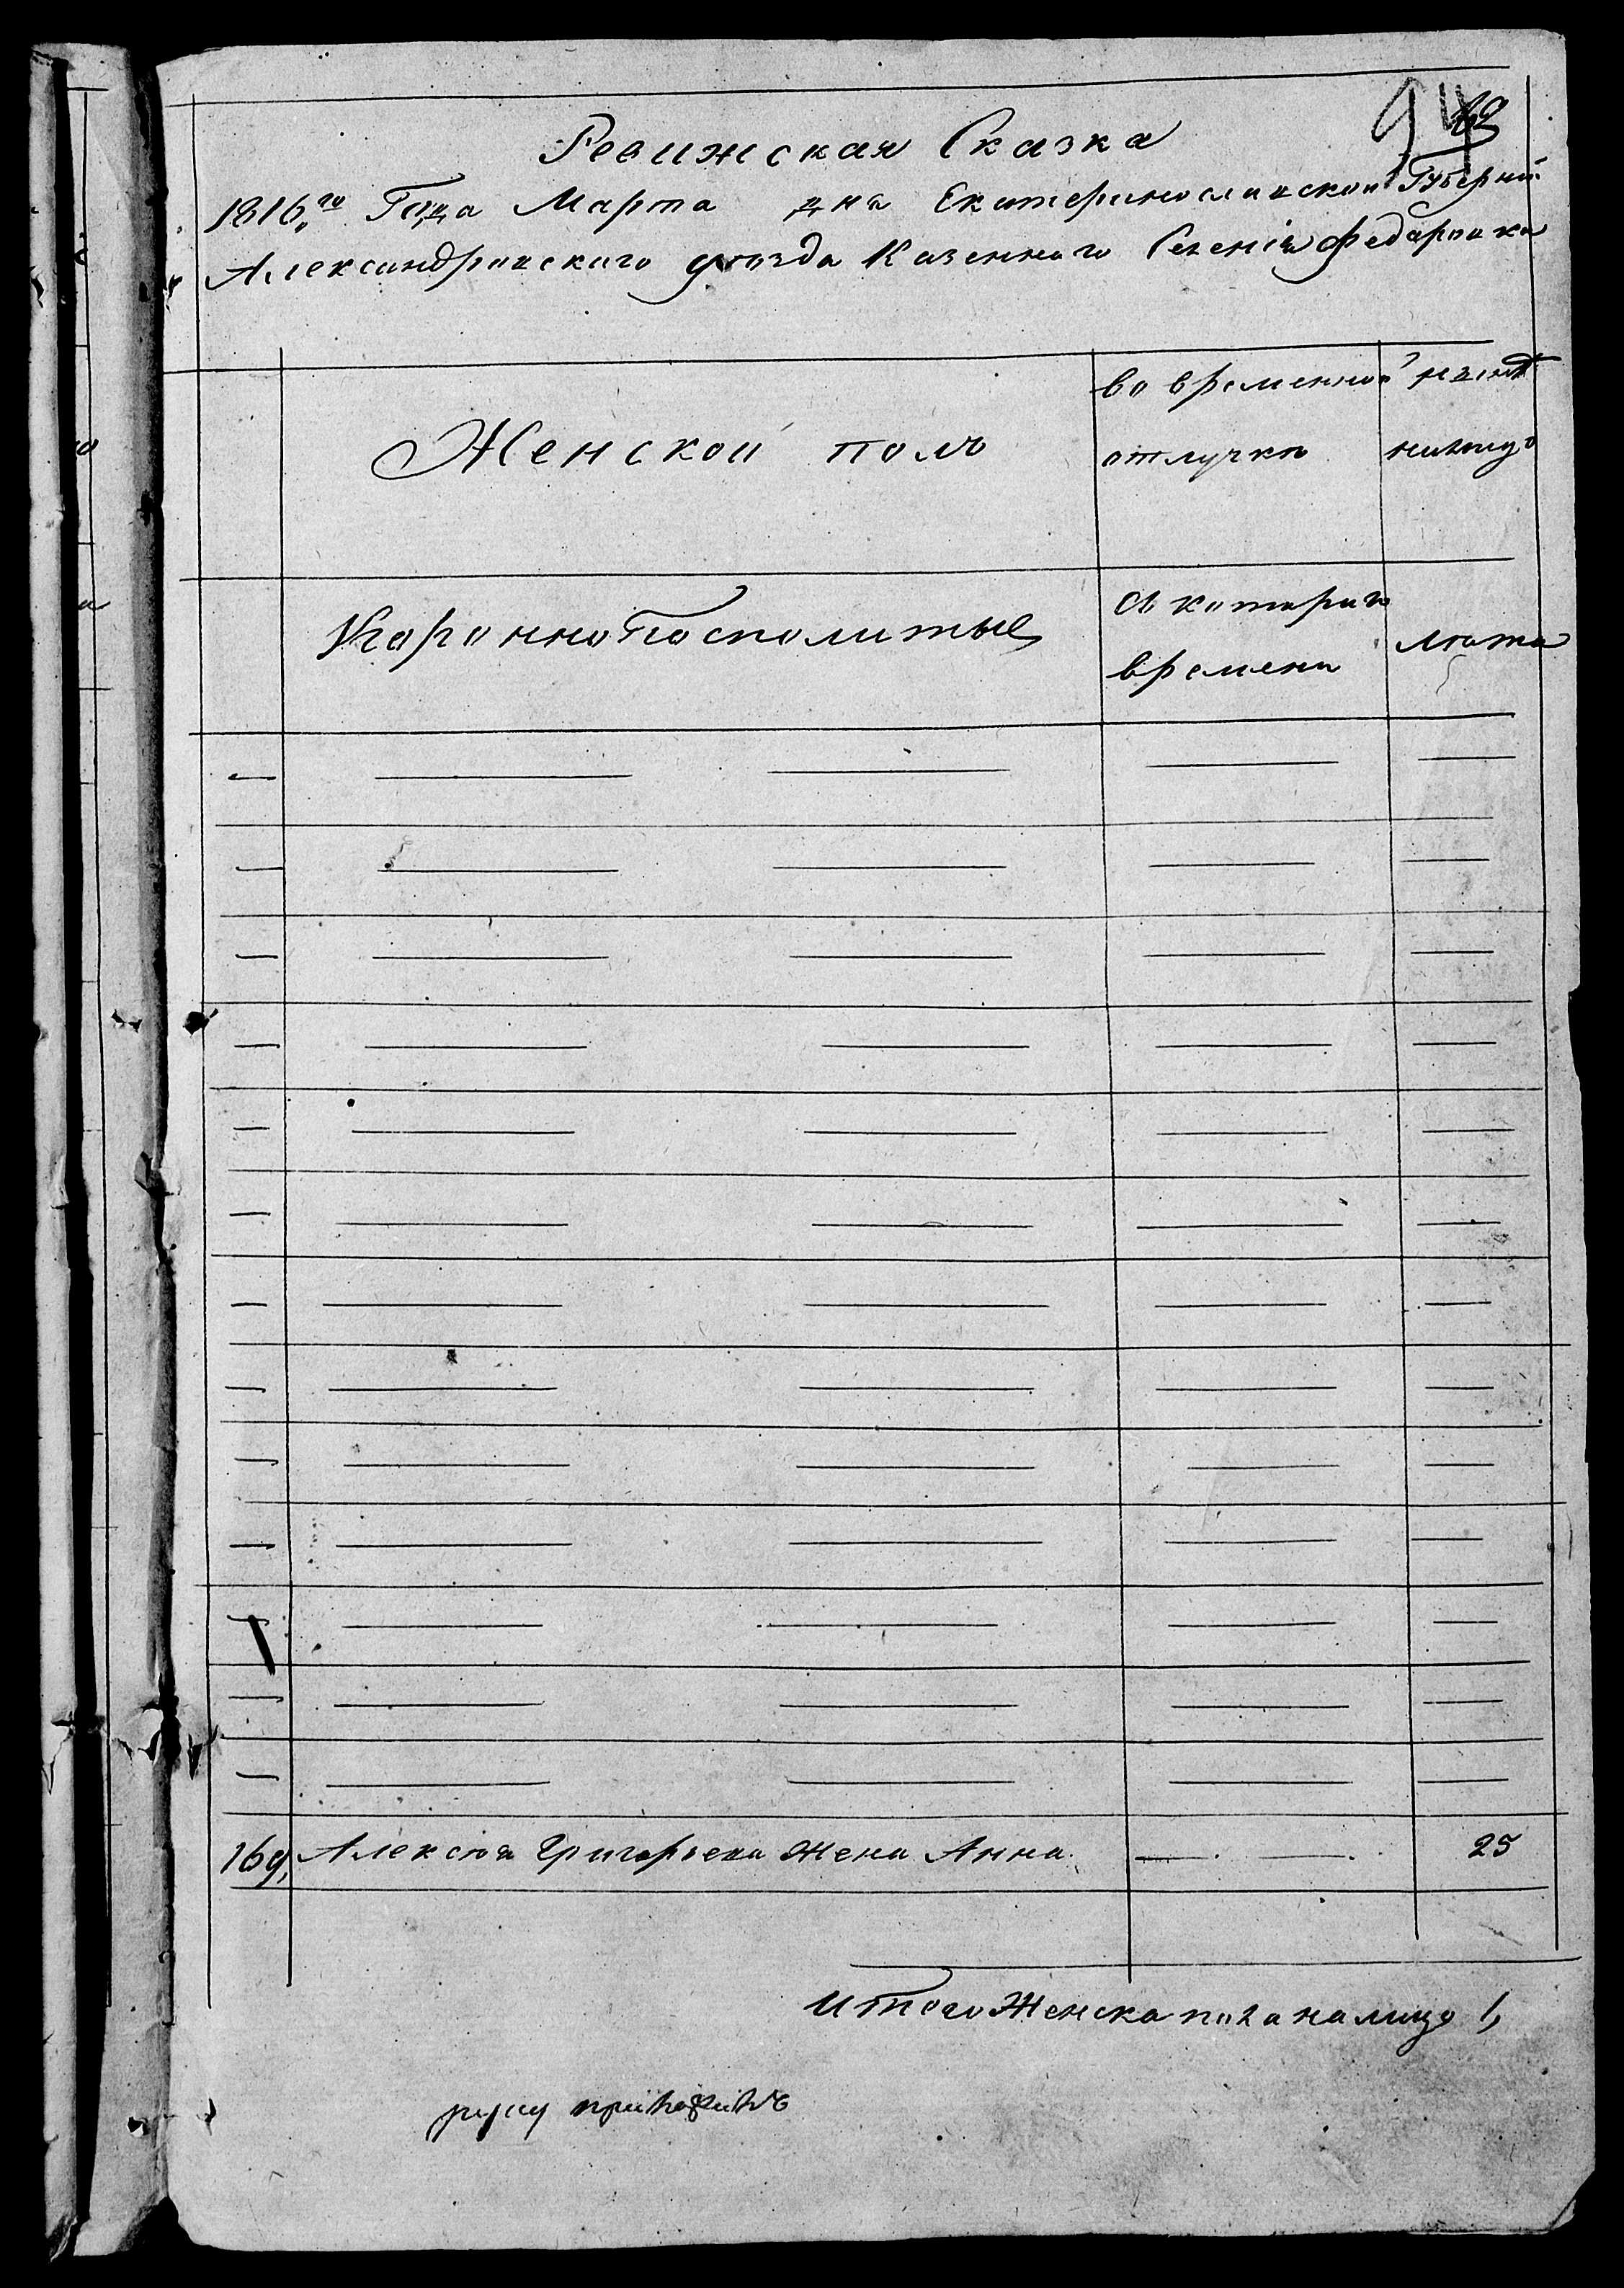 94
Ревижская Сказка
1816го Года Марта дня Екатеринославской Губерній
Александровскаго уезда Казеннаго Селенія Федоровки
Женской полъ
во временной
отлучке
налицо
Коронно Посполитые
С котораго
времени
лета
169, Алексея Григорьева Жена Анна 25
Итого Женска пола налицо 1,
руку приложилъ